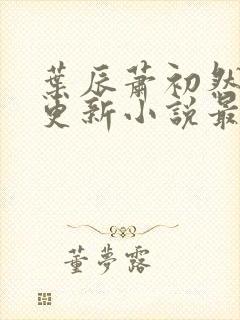 葉辰蕭初然
更新小說最
董夢露